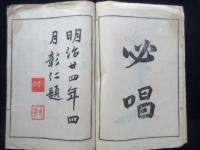 必唱
明治廿四年四
月彰仁題